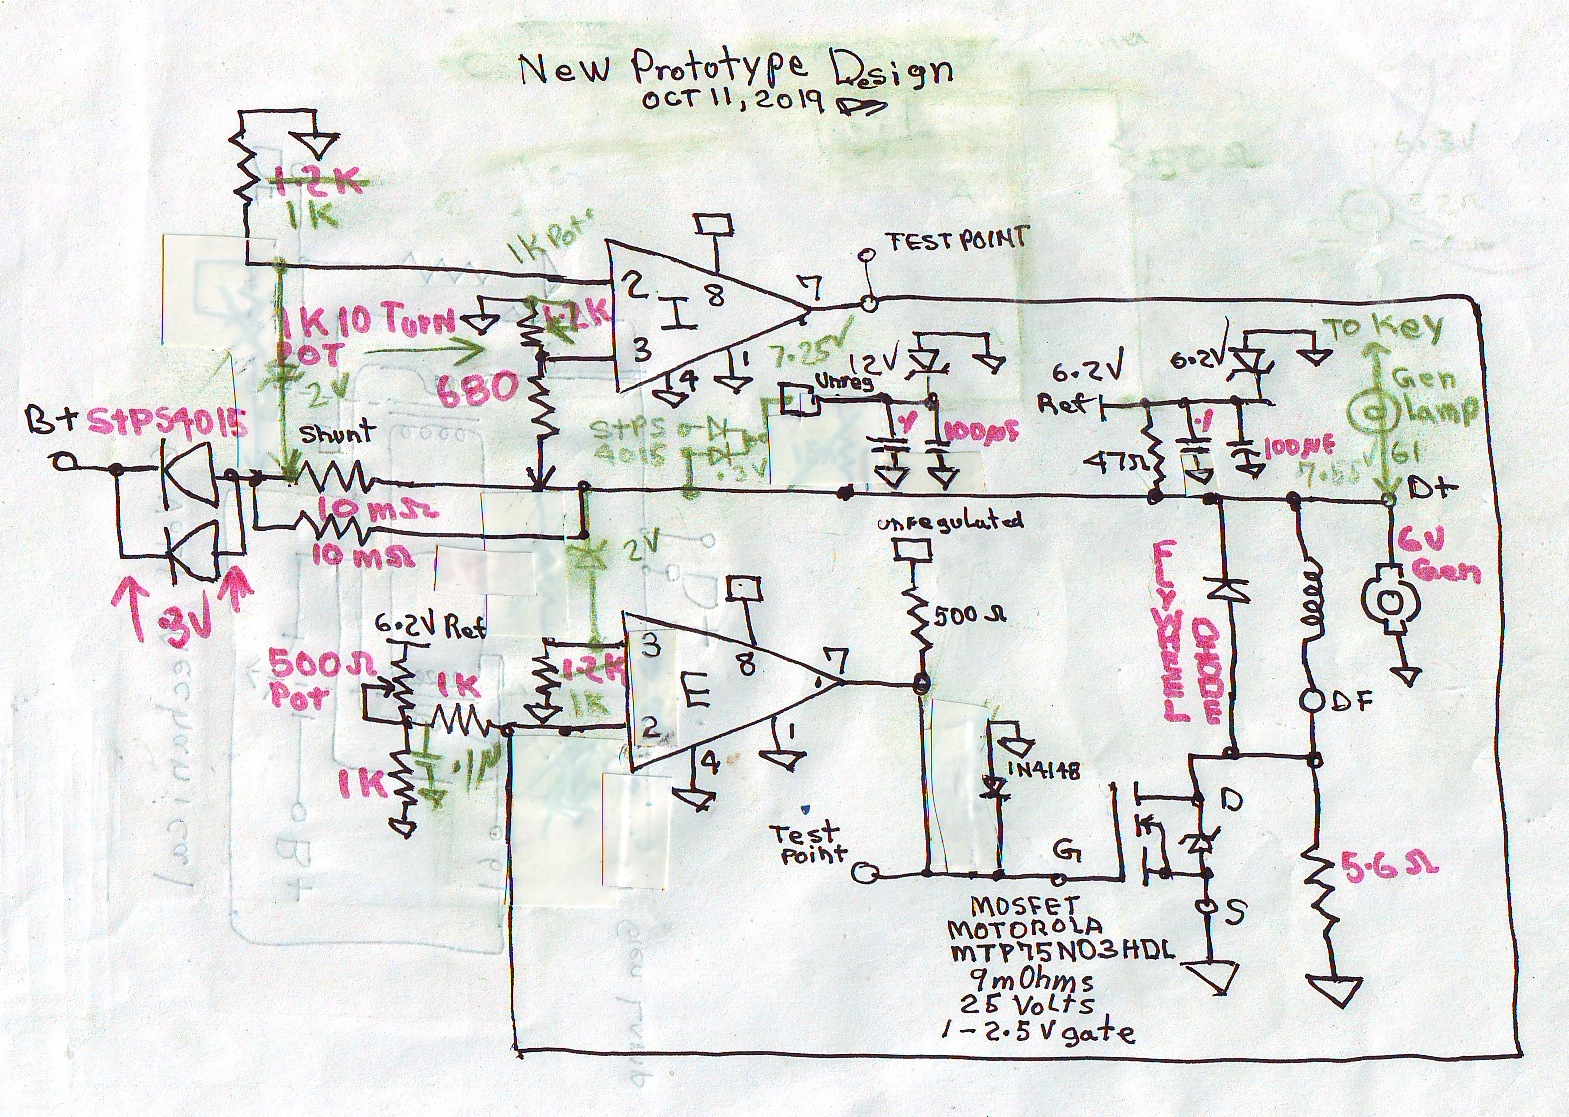 New Prototype Design
OCT 11, 2019
1.2K
1K
1K Pot.
TEST POINT
2
8
7
I
3
4
1
1.2K
1K 10 Turn
POT
2V
680
7.25V
12V
Unreg
.1
100µF
StPS
4015
.3V
6.2V
Ref
6.2V
47Ω
.1
100µF
TO Key
Gen
lamp
61
7.55V
D+
B+
StPS4015
Shunt
10 mΩ
10 mΩ
.3V
unregulated
500Ω
2V
6.2V Ref
500Ω
Pot
1K
1K
.1µ
1.2K
1K
3
8
7
E
2
4
1
FLYBACK
DIODE
6V
Gen
DF
1N4148
Test
Point
G
D
S
5.6Ω
MOSFET
MOTOROLA
MTP75N03HDL
9mOhms
25 Volts
1-2.5V gate
mechanical
B+
61
Gen Lamp